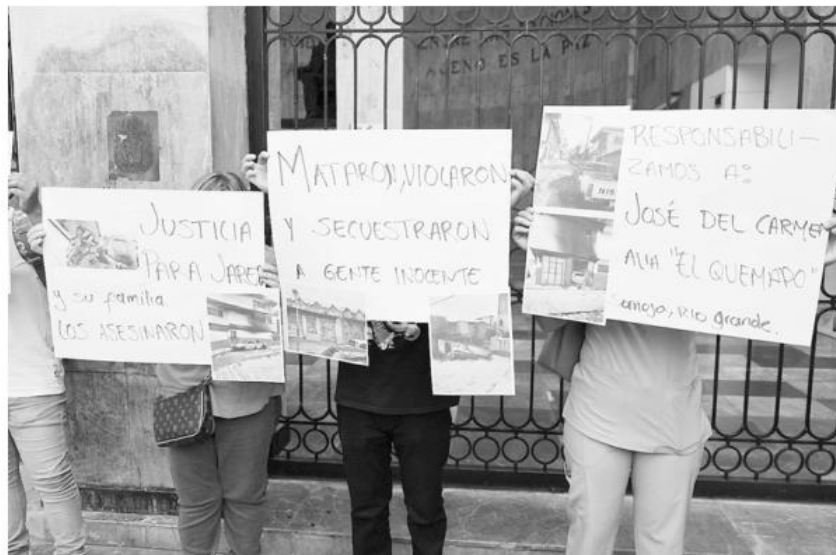 AGENO ES LA PAZ
JUSTICIA
PARA JARED
y su familia
LOS ASESINARON
MATARON, VIOLARON
Y SECUESTRARON
A GENTE INOCENTE
RESPONSABILI-
ZAMOS A:
JOSÉ DEL CARMEN
ALIA "EL QUEMADO"
Río grande.